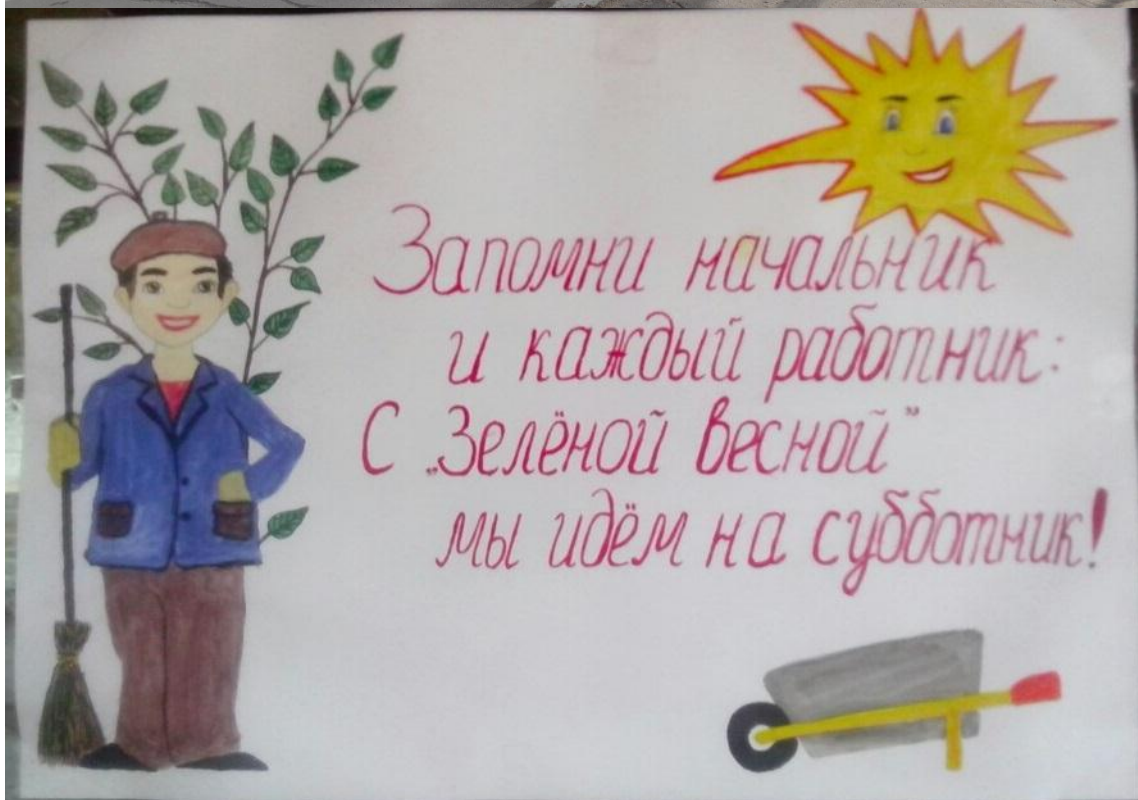 Запомни начальник
и каждый работник:
С „Зелёной весной”
мы идём на субботник!